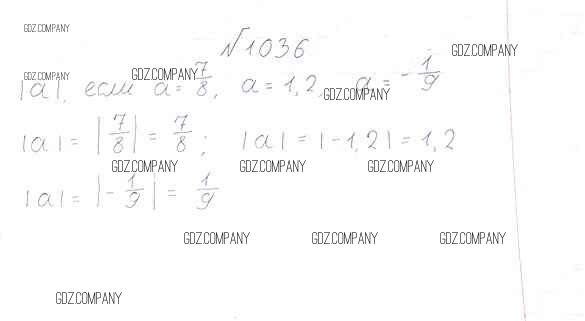 GDZ.COMPANY
№1036
GDZ.COMPANY
GDZ.COMPANY GDZ.COMPANY
|a|, если a = 7/8, a = 1,2, a = -1/9
GDZ.COMPANY
|a| = |7/8| = 7/8; |a| = |-1,2| = 1,2
GDZ.COMPANY GDZ.COMPANY GDZ.COMPANY
|a| = |-1/9| = 1/9
GDZ.COMPANY GDZ.COMPANY GDZ.COMPANY
GDZ.COMPANY